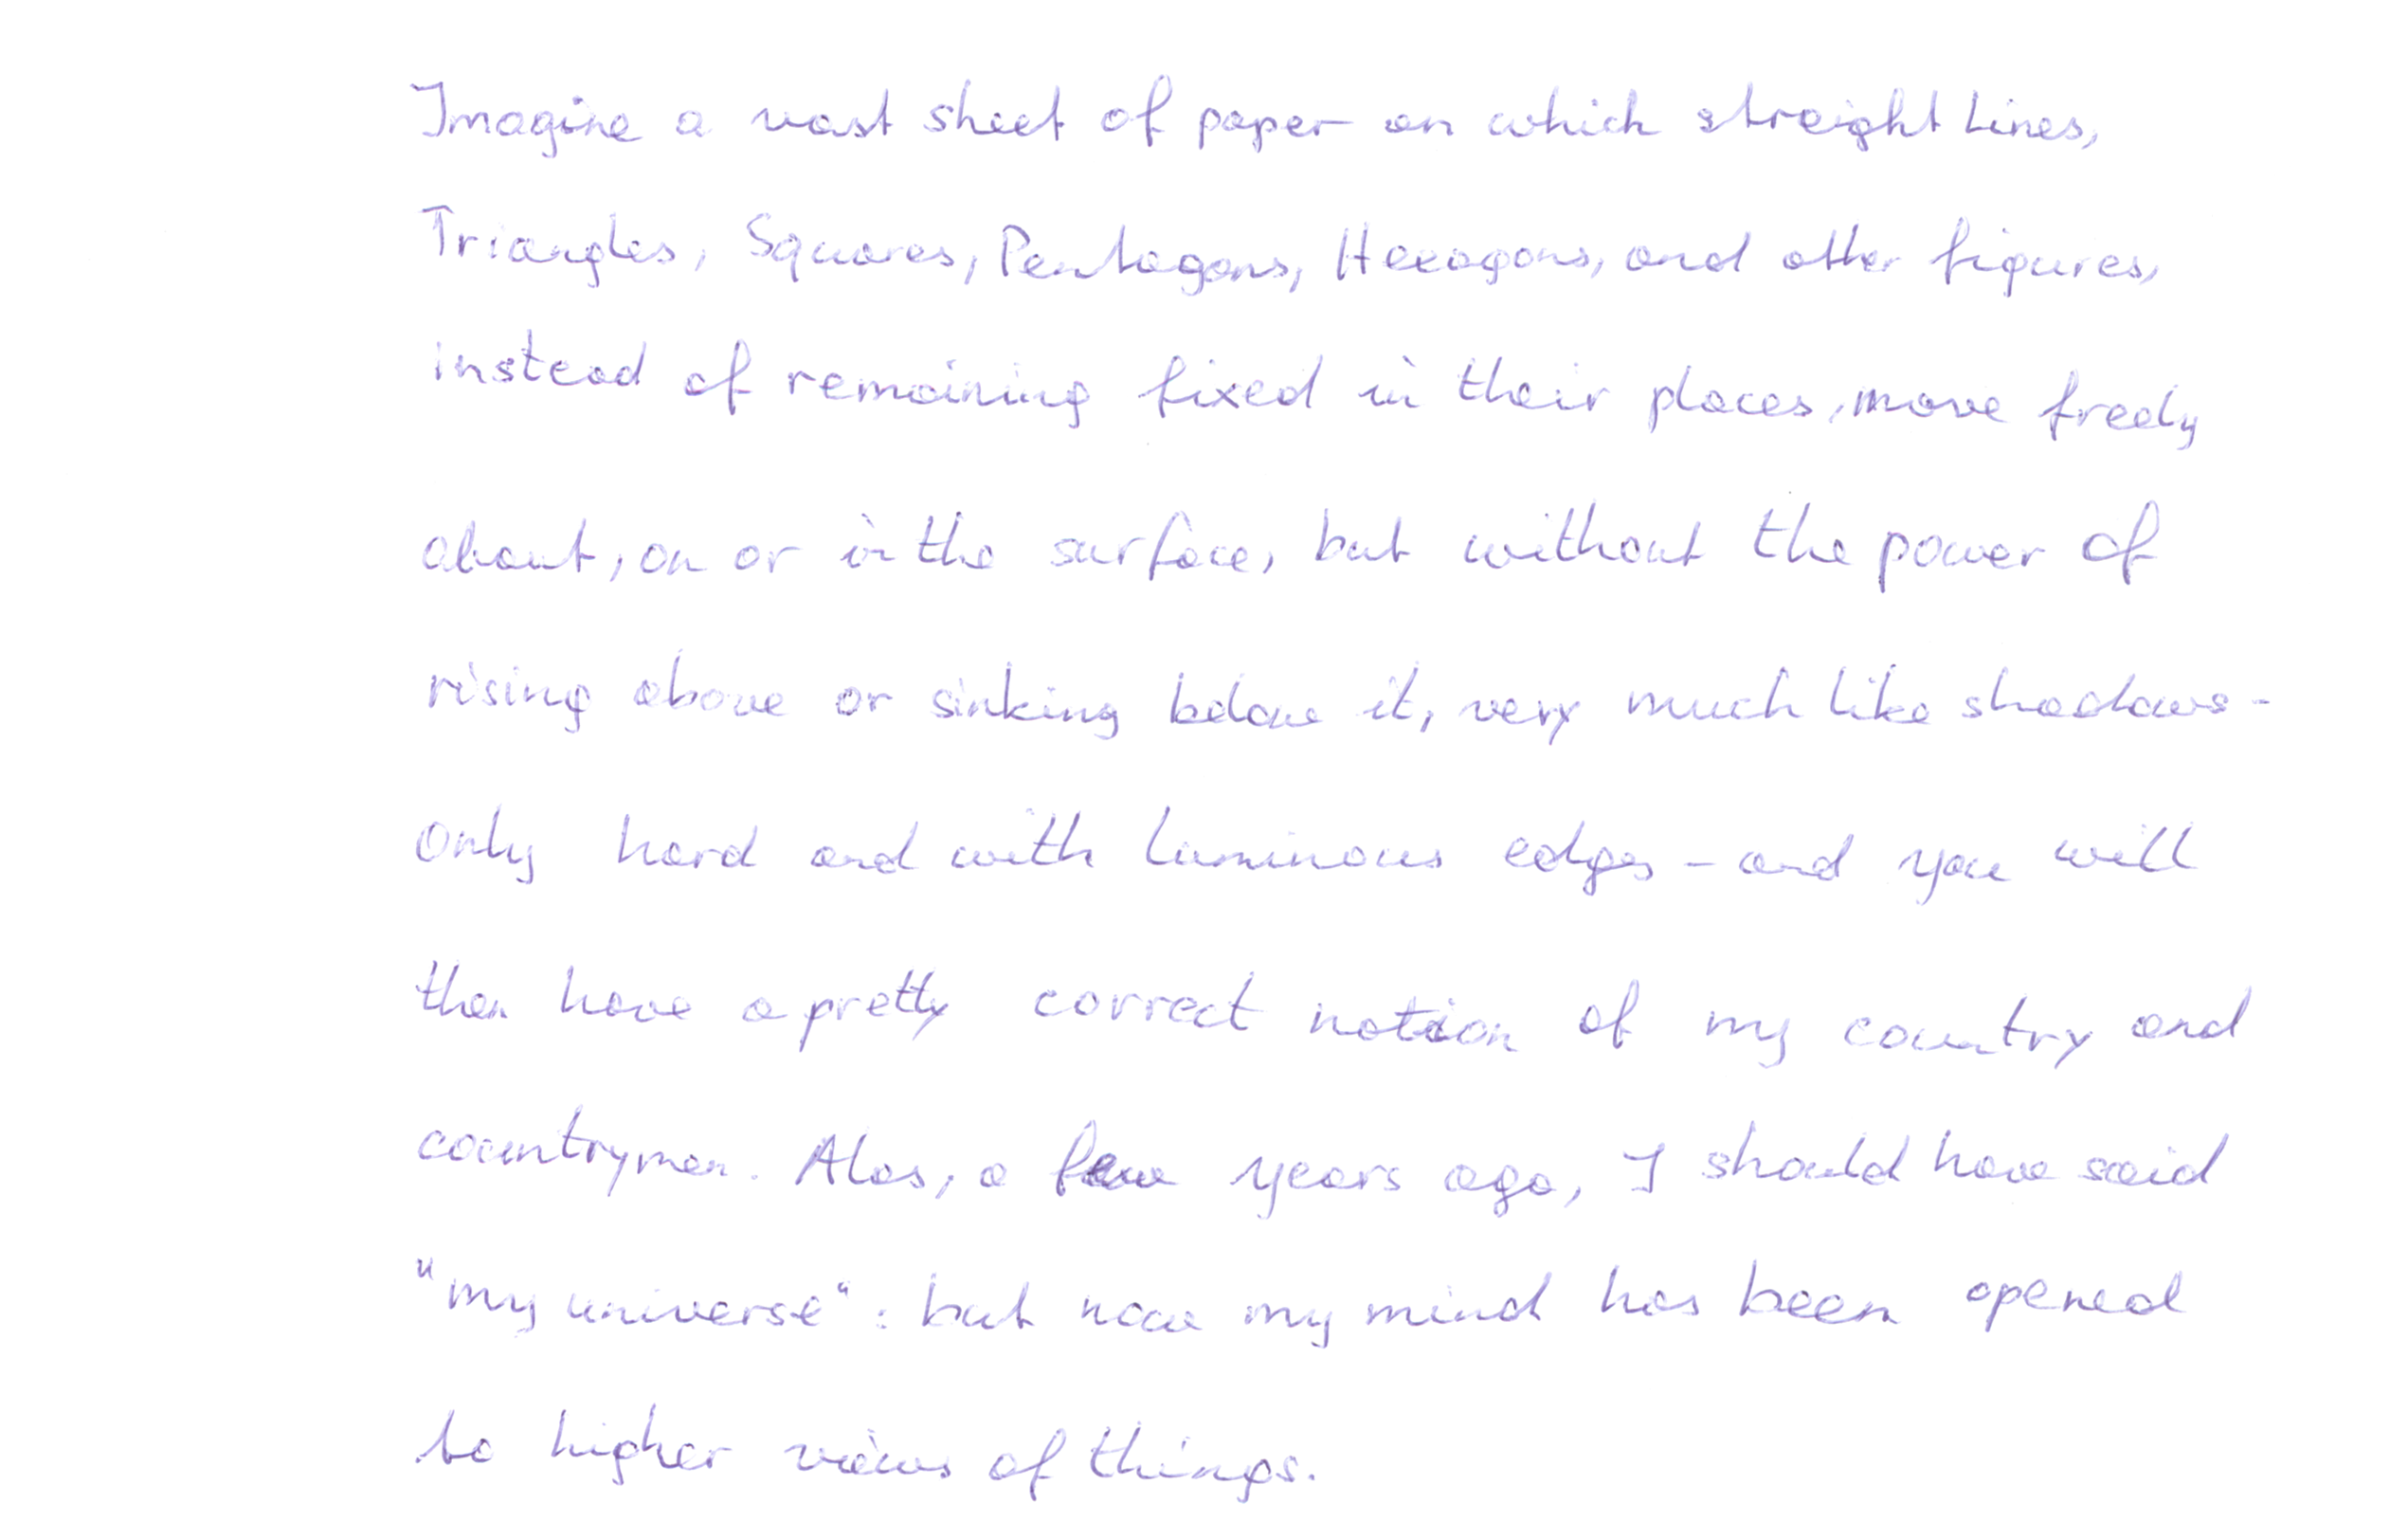 Imagine a vast sheet of paper on which straight Lines,
Triangles, Squares, Pentagons, Hexagons, and other figures,
instead of remaining fixed in their places, move freely
about, on or in the surface, but without the power of
rising above or sinking below it, very much like shadows -
only hard and with luminous edges - and you will
then have a pretty correct notion of my country and
countrymen. Alas, a few years ago, I should have said
"my universe": but now my mind has been opened
to higher views of things.